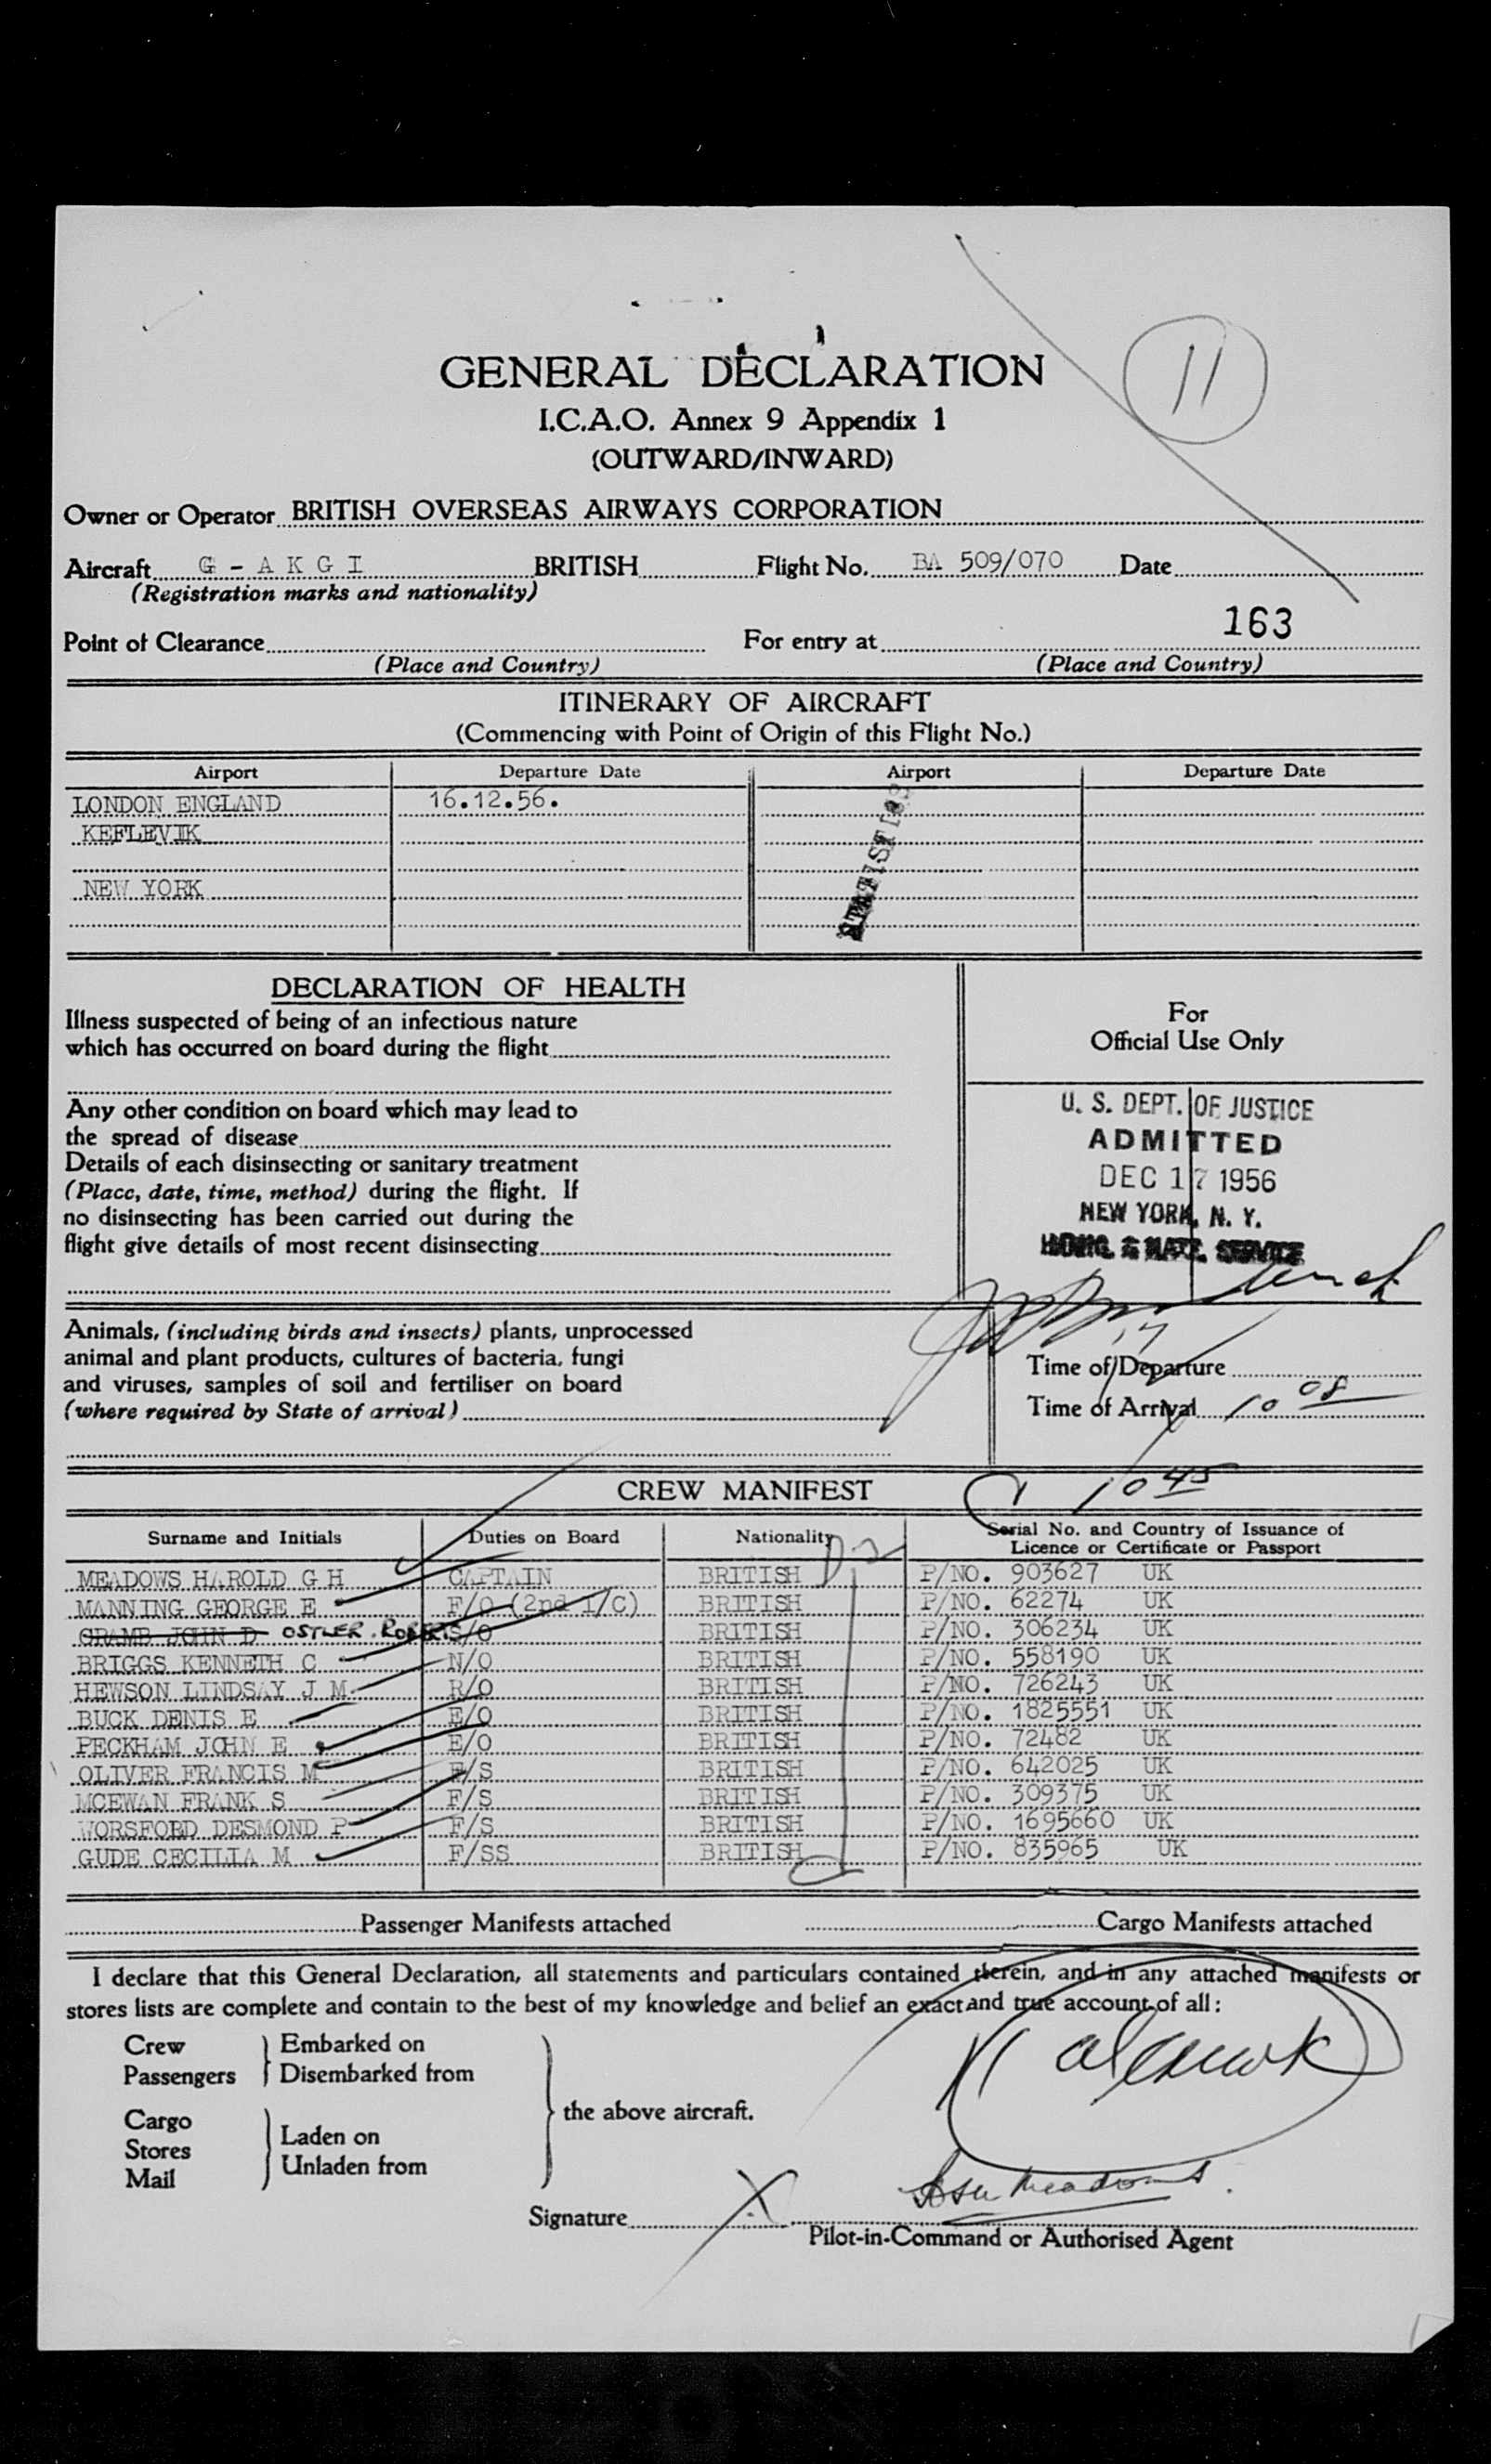 11
GENERAL DECLARATION
I.C.A.O. Annex 9 Appendix 1
(OUTWARD/INWARD)
Owner or Operator BRITISH OVERSEAS AIRWAYS CORPORATION
Aircraft G - A K G I BRITISH Flight No. BA 509/070 Date
(Registration marks and nationality)
163
Point of Clearance For entry at
(Place and Country) (Place and Country)
ITINERARY OF AIRCRAFT
(Commencing with Point of Origin of this Flight No.)
Airport Departure Date Airport Departure Date
LONDON ENGLAND 16.12.56.
KEFLEVIK
NEW YORK
STATISTICS
DECLARATION OF HEALTH
Illness suspected of being of an infectious nature
which has occurred on board during the flight
Any other condition on board which may lead to
the spread of disease
Details of each disinsecting or sanitary treatment
(Place, date, time, method) during the flight. If
no disinsecting has been carried out during the
flight give details of most recent disinsecting
For
Official Use Only
U. S. DEPT. OF JUSTICE
ADMITTED
DEC 17 1956
NEW YORK, N. Y.
IMMIG. & NATZ. SERVICE
Animals, (including birds and insects) plants, unprocessed
animal and plant products, cultures of bacteria, fungi
and viruses, samples of soil and fertiliser on board
(where required by State of arrival)
Time of Departure
Time of Arrival 10 08
10 45
CREW MANIFEST
Surname and Initials Duties on Board Nationality Serial No. and Country of Issuance of
Licence or Certificate or Passport
MEADOWS HAROLD G H CAPTAIN BRITISH P/NO. 903627 UK
MANNING GEORGE E F/O (2nd I/C) BRITISH P/NO. 62274 UK
CRAMB JOHN D OSTLER. ROBERT S/O BRITISH P/NO. 306234 UK
BRIGGS KENNETH C N/O BRITISH P/NO. 558190 UK
HEWSON LINDSAY J M R/O BRITISH P/NO. 726243 UK
BUCK DENIS E E/O BRITISH P/NO. 1825551 UK
PECKHAM JOHN E E/O BRITISH P/NO. 72482 UK
OLIVER FRANCIS M F/S BRITISH P/NO. 642025 UK
MCEWAN FRANK S F/S BRITISH P/NO. 309375 UK
WORSFOBD DESMOND P F/S BRITISH P/NO. 1695660 UK
GUDE CECILIA M F/SS BRITISH P/NO. 835965 UK
Passenger Manifests attached Cargo Manifests attached
I declare that this General Declaration, all statements and particulars contained therein, and in any attached manifests or
stores lists are complete and contain to the best of my knowledge and belief an exact and true account of all:
Crew Embarked on
Passengers Disembarked from
the above aircraft.
Cargo
Stores
Mail
Laden on
Unladen from
Signature X Meadows.
Pilot-in-Command or Authorised Agent